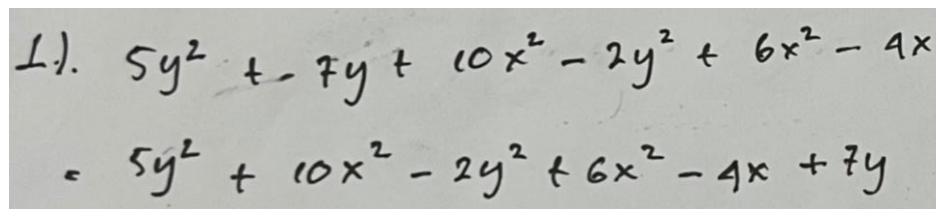 1). 5y² + - 7y + 10x² - 2y² + 6x² - 4x
= 5y² + 10x² - 2y² + 6x² - 4x + 7y